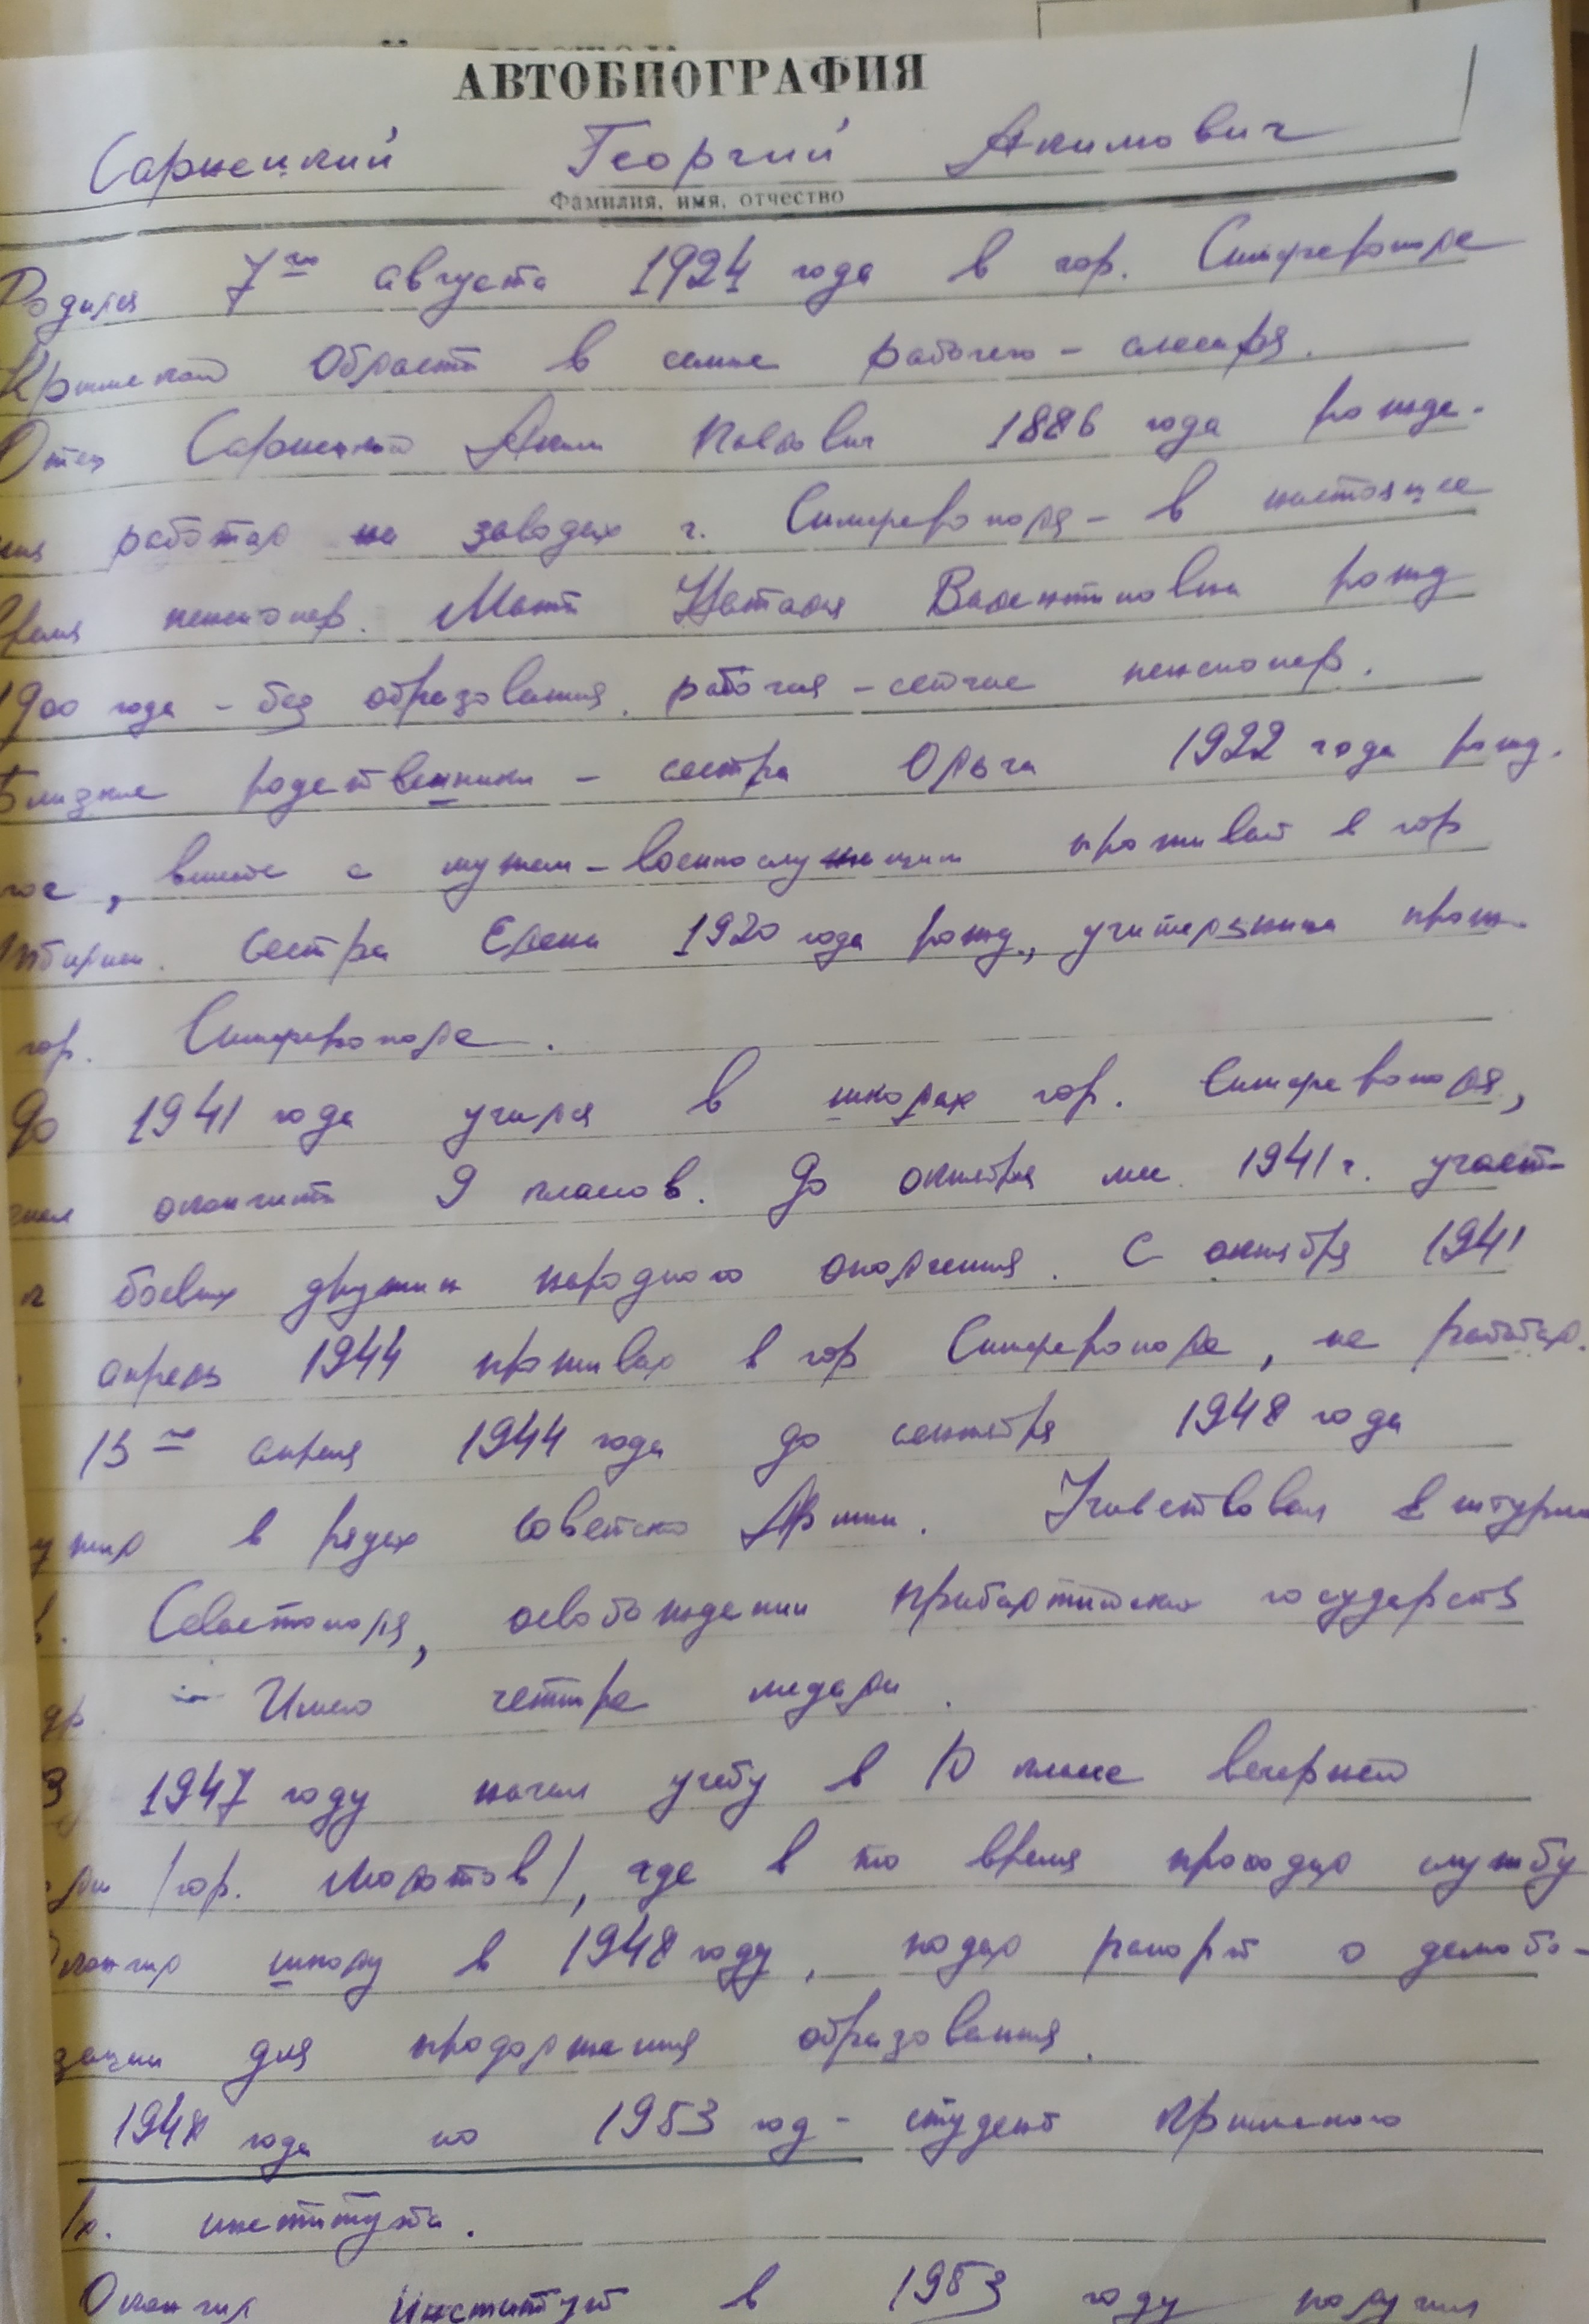 АВТОБИОГРАФИЯ
Сарнецкий Георгий Акимович
Фамилия, имя, отчество
Родился 7го августа 1924 года в гор. Симферополе
Крымской области в семье рабочего - слесаря.
Отец Сарнецкий Аким Павлович 1886 года рожде-
ния работал на заводах г. Симферополя - в настоящее
время пенсионер. Мать Наталья Валентиновна рожд
1900 года - без образования, рабочая - сейчас пенсионер.
Близкие родственники - сестра Ольга 1922 года рожд.
, вместе с мужем - военнослужащим проживает в гор
Сестра Елена 1920 года рожд., учительница прож.
гор. Симферополе.
До 1941 года учился в школах гор. Симферополя,
окончить 9 классов. До октября мес. 1941 г. участ-
боевых дружин народного ополчения. С октября 1941
апрель 1944 проживал в гор Симферополе, не работал.
13го апреля 1944 года до сентября 1948 года
служил в рядах Советской Армии. Участвовал в штурме
Севастополя, освобождении прибалтийских государств
др. - Имею четыре медали.
В 1947 году начал учебу в 10 классе вечерней
/гор. Молотов/, где в то время проходил службу
Окончил школу в 1948 году, подал рапорт о демоби-
зации для продолжения образования.
1948 года по 1953 год - студент Крымского
института.
Окончил Институт в 1953 году получил